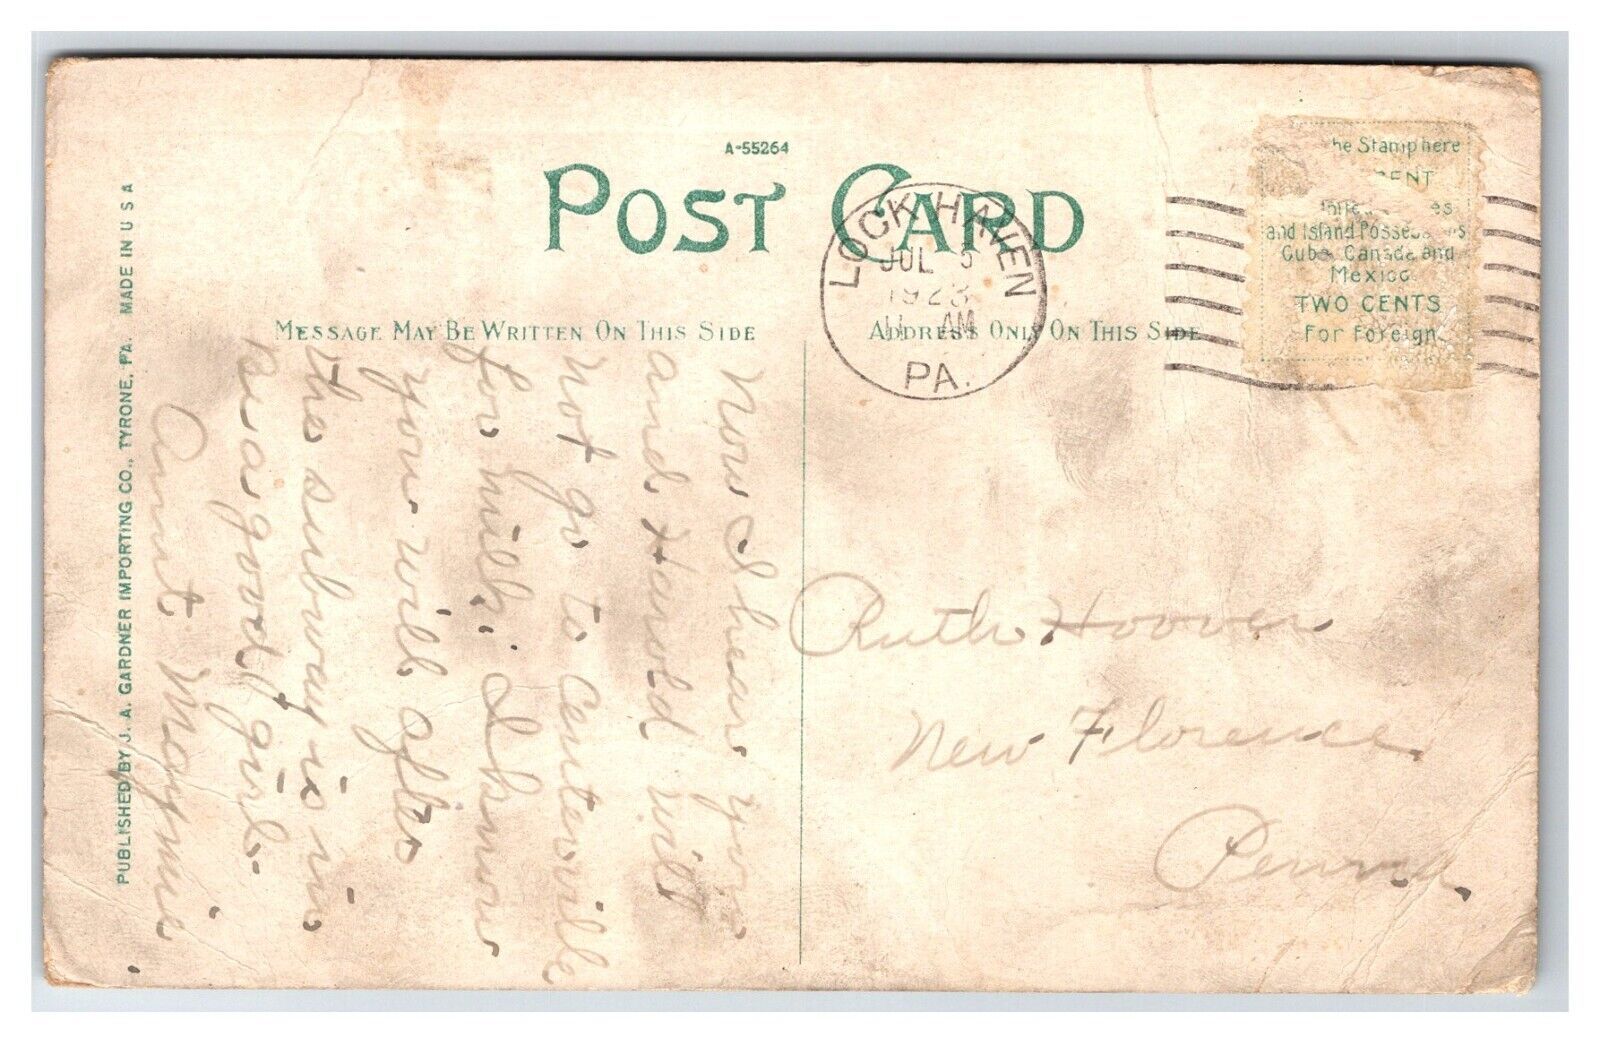 A-55264
POST CARD
MESSAGE MAY BE WRITTEN ON THIS SIDE
ADDRESS ONLY ON THIS SIDE
LOCK HAVEN
JUL 5
1923
11 AM
PA.
he Stamp here
and Island Posse
Cuba, Canada and
Mexico.
TWO CENTS
For Foreign.
Now I hear you
and Harold will
not go to Centerville
for milk. I know
you will after
the subway is in
Be a good girl.
Aunt Mayme
Ruth Hoover
New Florence
Penna.
PUBLISHED BY J. A. GARDNER IMPORTING CO., TYRONE, PA. MADE IN U S A